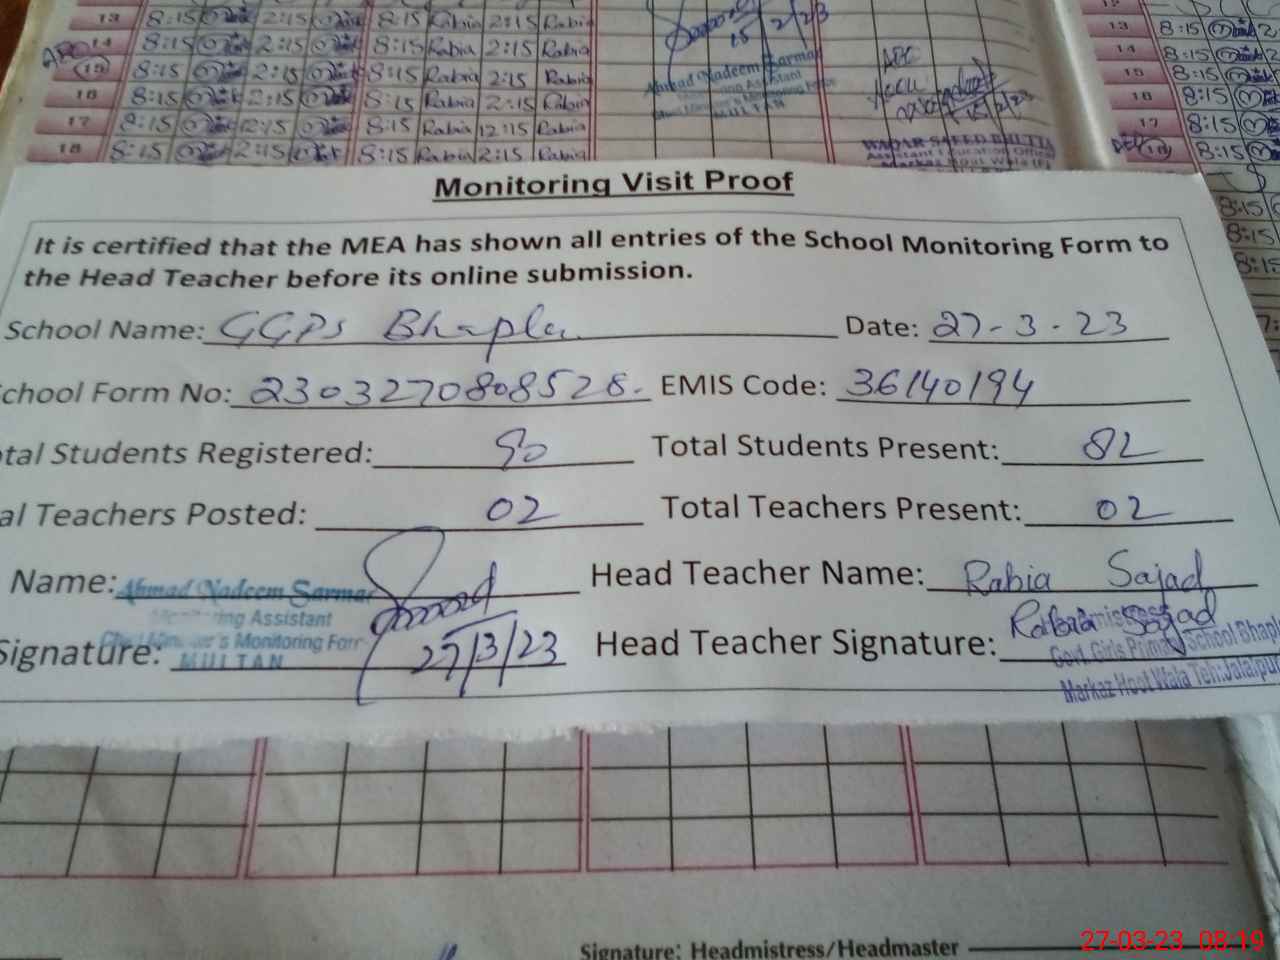 13 8:15 2:15 8:15 Rabia 2:15 Rabia
14 8:15 2:15 8:15 Rabia 2:15 Rabia
15 8:15 2:15 8:15 Rabia 2:15 Rabia
16 8:15 2:15 8:15 Rabia 2:15 Rabia
17 8:15 12:15 8:15 Rabia 12:15 Rabia
18 8:15 2:15 8:15 Rabia 2:15 Rabia
15/2/23
Ahmad Nadeem Sarmad
MULTAN
15/2/23
WAQAR SAEED BHUTTA
Assistant Education Officer
Markaz Hoot Wala
13 8:15
14 8:15
15 8:15
16 8:15
17 8:15
18 8:15
8:15
8:15
8:15
Monitoring Visit Proof
It is certified that the MEA has shown all entries of the School Monitoring Form to
the Head Teacher before its online submission.
School Name: GGPS Bhapla Date: 27-3-23
chool Form No: 2303270808528. EMIS Code: 36140194
tal Students Registered: 90 Total Students Present: 82
al Teachers Posted: 02 Total Teachers Present: 02
Name: Ahmad Nadeem Sarmad Head Teacher Name: Rabia Sajad
Monitoring Assistant
Chief Minister's Monitoring Forc
MULTAN
Signature: 27/3/23 Head Teacher Signature: Rabia Sajad
Govt. Girls Primary School Bhapl
Markaz Hoot Wala Teh: Jalalpur
Signature: Headmistress/Headmaster
27-03-23 08:19